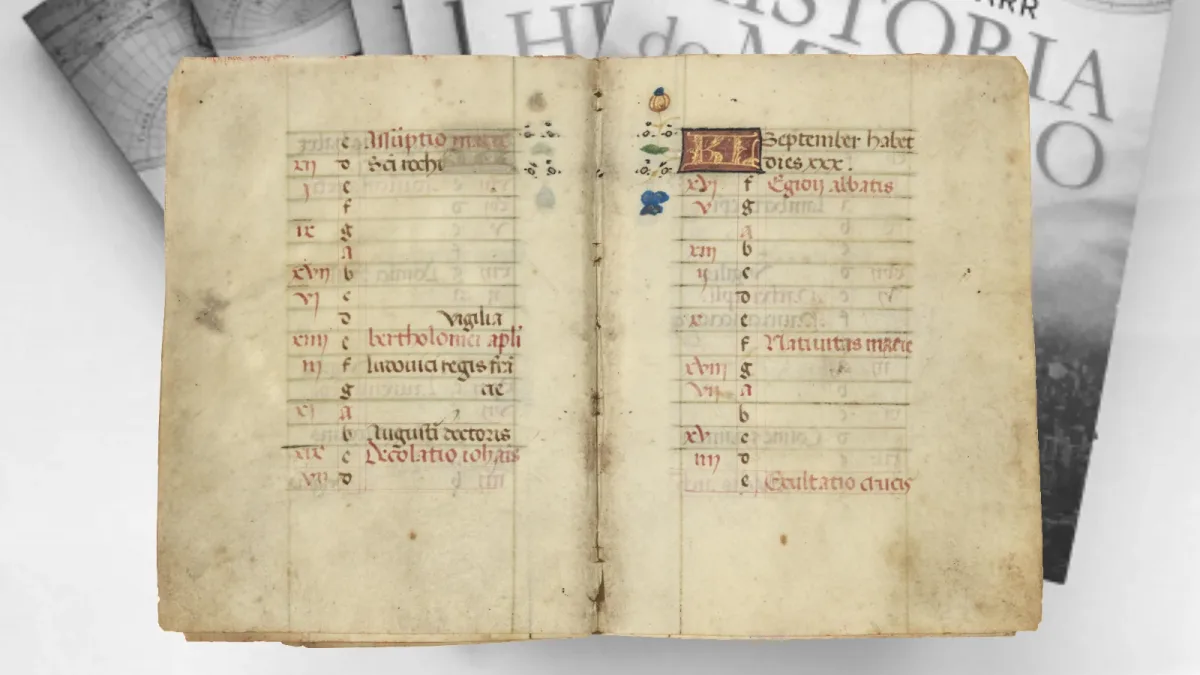 ARR
HI
ISTORIA
do M
O
c Assūptio marie
xii d Sci rochi
j e
f
ix g
a
xvij b
vj c
d Vigilia
xiiij e bertholomei apli
iij f ludovici regis frā
g cie
xj a
b Augusti doctoris
xix c Decolatio iohais
viij d
KL September habet
dies xxx.
xvj f Egidij abbatis
v g
a
xiij b
ij c
d
x e
f Nativitas marie
xviij g
vij a
b
xv c
iiij d
e Exultatio crucis